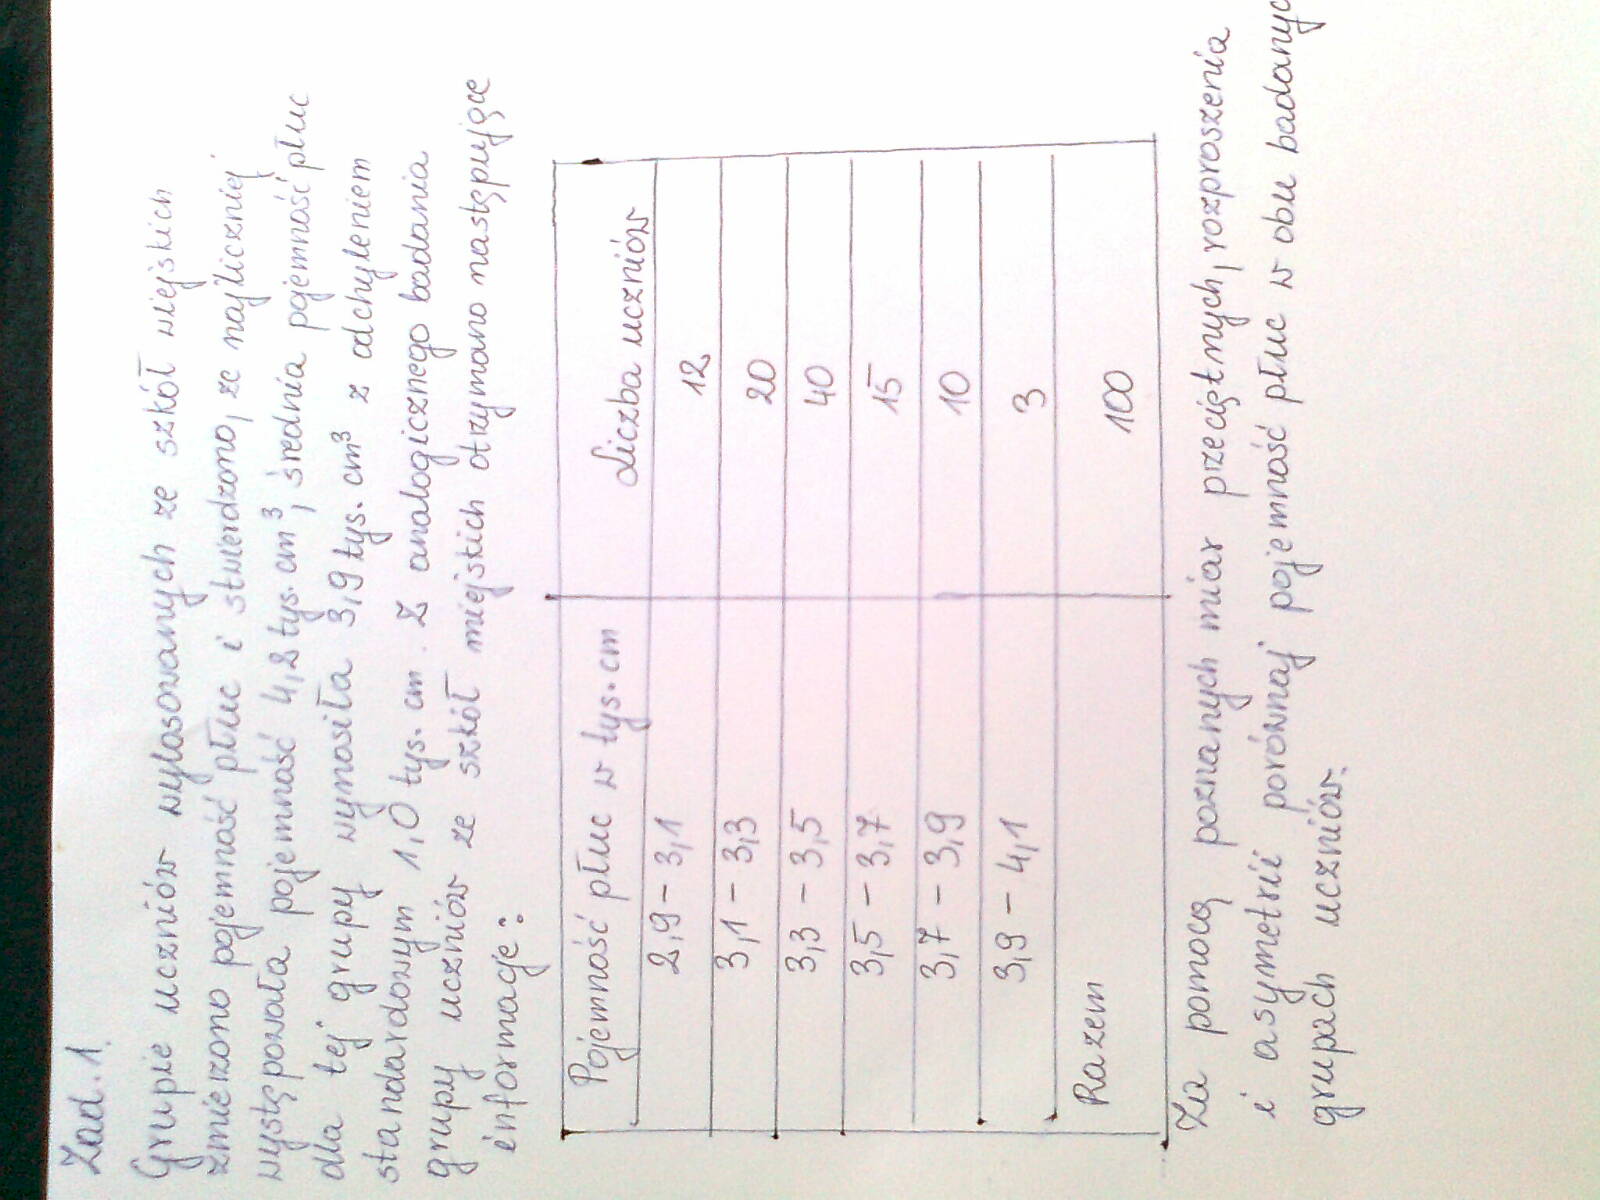 Zad. 1.
Grupie uczniów wylosowanych ze szkół wiejskich
zmierzono pojemność płuc i stwierdzono, że najliczniej
występowała pojemność 4,2 tys. cm³, średnia pojemność płuc
dla tej grupy wynosiła 3,9 tys. cm³ z odchyleniem
standardowym 1,0 tys. cm. Z analogicznego badania
grupy uczniów ze szkół miejskich otrzymano następujące
informacje:
Pojemność płuc w tys. cm Liczba uczniów
2,9 – 3,1 12
3,1 – 3,3 20
3,3 – 3,5 40
3,5 – 3,7 15
3,7 – 3,9 10
3,9 – 4,1 3
Razem 100
Za pomocą poznanych miar przeciętnych, rozproszenia
i asymetrii porównaj pojemność płuc w obu badanyc
grupach uczniów.